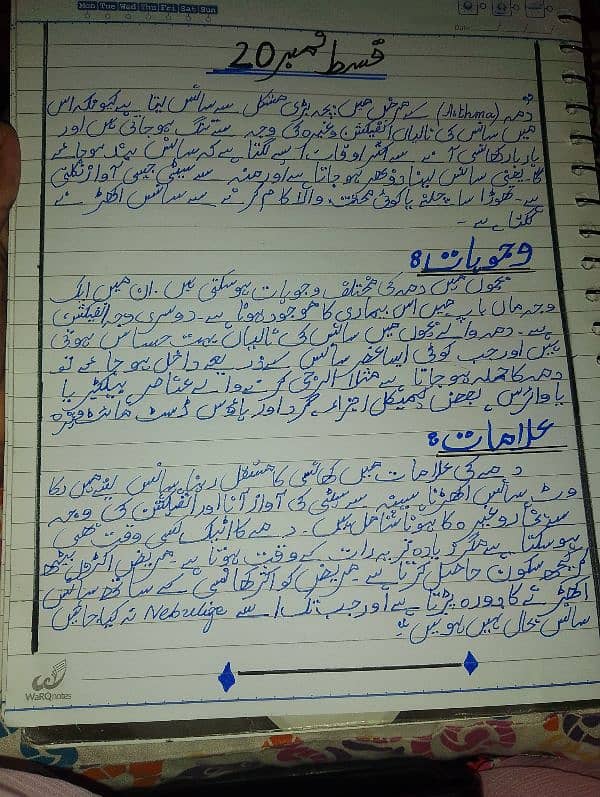 Mon Tue Wed Thu Fri Sat Sun
Date:
قسط نمبر 20
دمہ (Asthma) کے مرض میں بچہ بڑی مشکل سے سانس لیتا ہے کیونکہ اس
میں سانس کی نالیاں انفیکشن وغیرہ کی وجہ سے تنگ ہو جاتی ہیں اور
بار بار کھانسی آنے سے اکثر اوقات ایسے لگتا ہے کہ سانس بند ہو جائے
گا یعنی سانس لینا دوبھر ہو جاتا ہے اور منہ سے سیٹی جیسی آواز نکلتی
ہے۔ تھوڑا سا چلنے یا کوئی محنت والا کام کرنے سے سانس اکھڑنے
لگتا ہے۔
وجوہات:
بچوں میں دمہ کی مختلف وجوہات ہو سکتی ہیں۔ ان میں ایک
وجہ ماں باپ میں اس بیماری کا موجود ہونا ہے۔ دوسری وجہ انفیکشن
ہے۔ دمہ والے بچوں میں سانس کی نالیاں بہت حساس ہوتی
ہیں اور جب کوئی ایسا عنصر سانس کے ذریعے داخل ہو جائے تو
دمہ کا حملہ ہو جاتا ہے مثلاً الرجی کرنے والے عناصر بیکٹیریا
یا وائرس، بعض کیمیکل اجزاء گرد اور ہاؤس ڈسٹ مائٹ وغیرہ
علامات:
دمہ کی علامات میں کھانسی کا مسلسل رہنا، سانس لینے میں رکا
وٹ، سانس اکھڑنا سینہ سے سیٹی کی آواز آنا اور انفیکشن کی وجہ
سے بخار وغیرہ کا ہونا شامل ہیں۔ دمہ کا اٹیک کسی وقت بھی
ہو سکتا ہے مگر زیادہ تر یہ رات کے وقت ہوتا ہے۔ مریض اکڑوں بیٹھ
کر کچھ سکون حاصل کرتا ہے۔ مریض کو اکثر کھانسی کے ساتھ سانس
اکھڑنے کا دورہ پڑتا ہے اور جب تک اسے Nebulize نہ کیا جائیں
سانس بحال نہیں ہوتیں۔
WaRQnotes